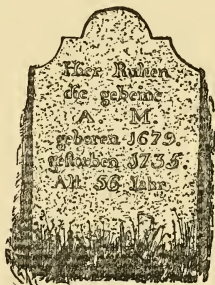 Hier Ruhen
die gebeine
A. M
geboren 1679.
gestorben 1735
Alt 56 Jahr.